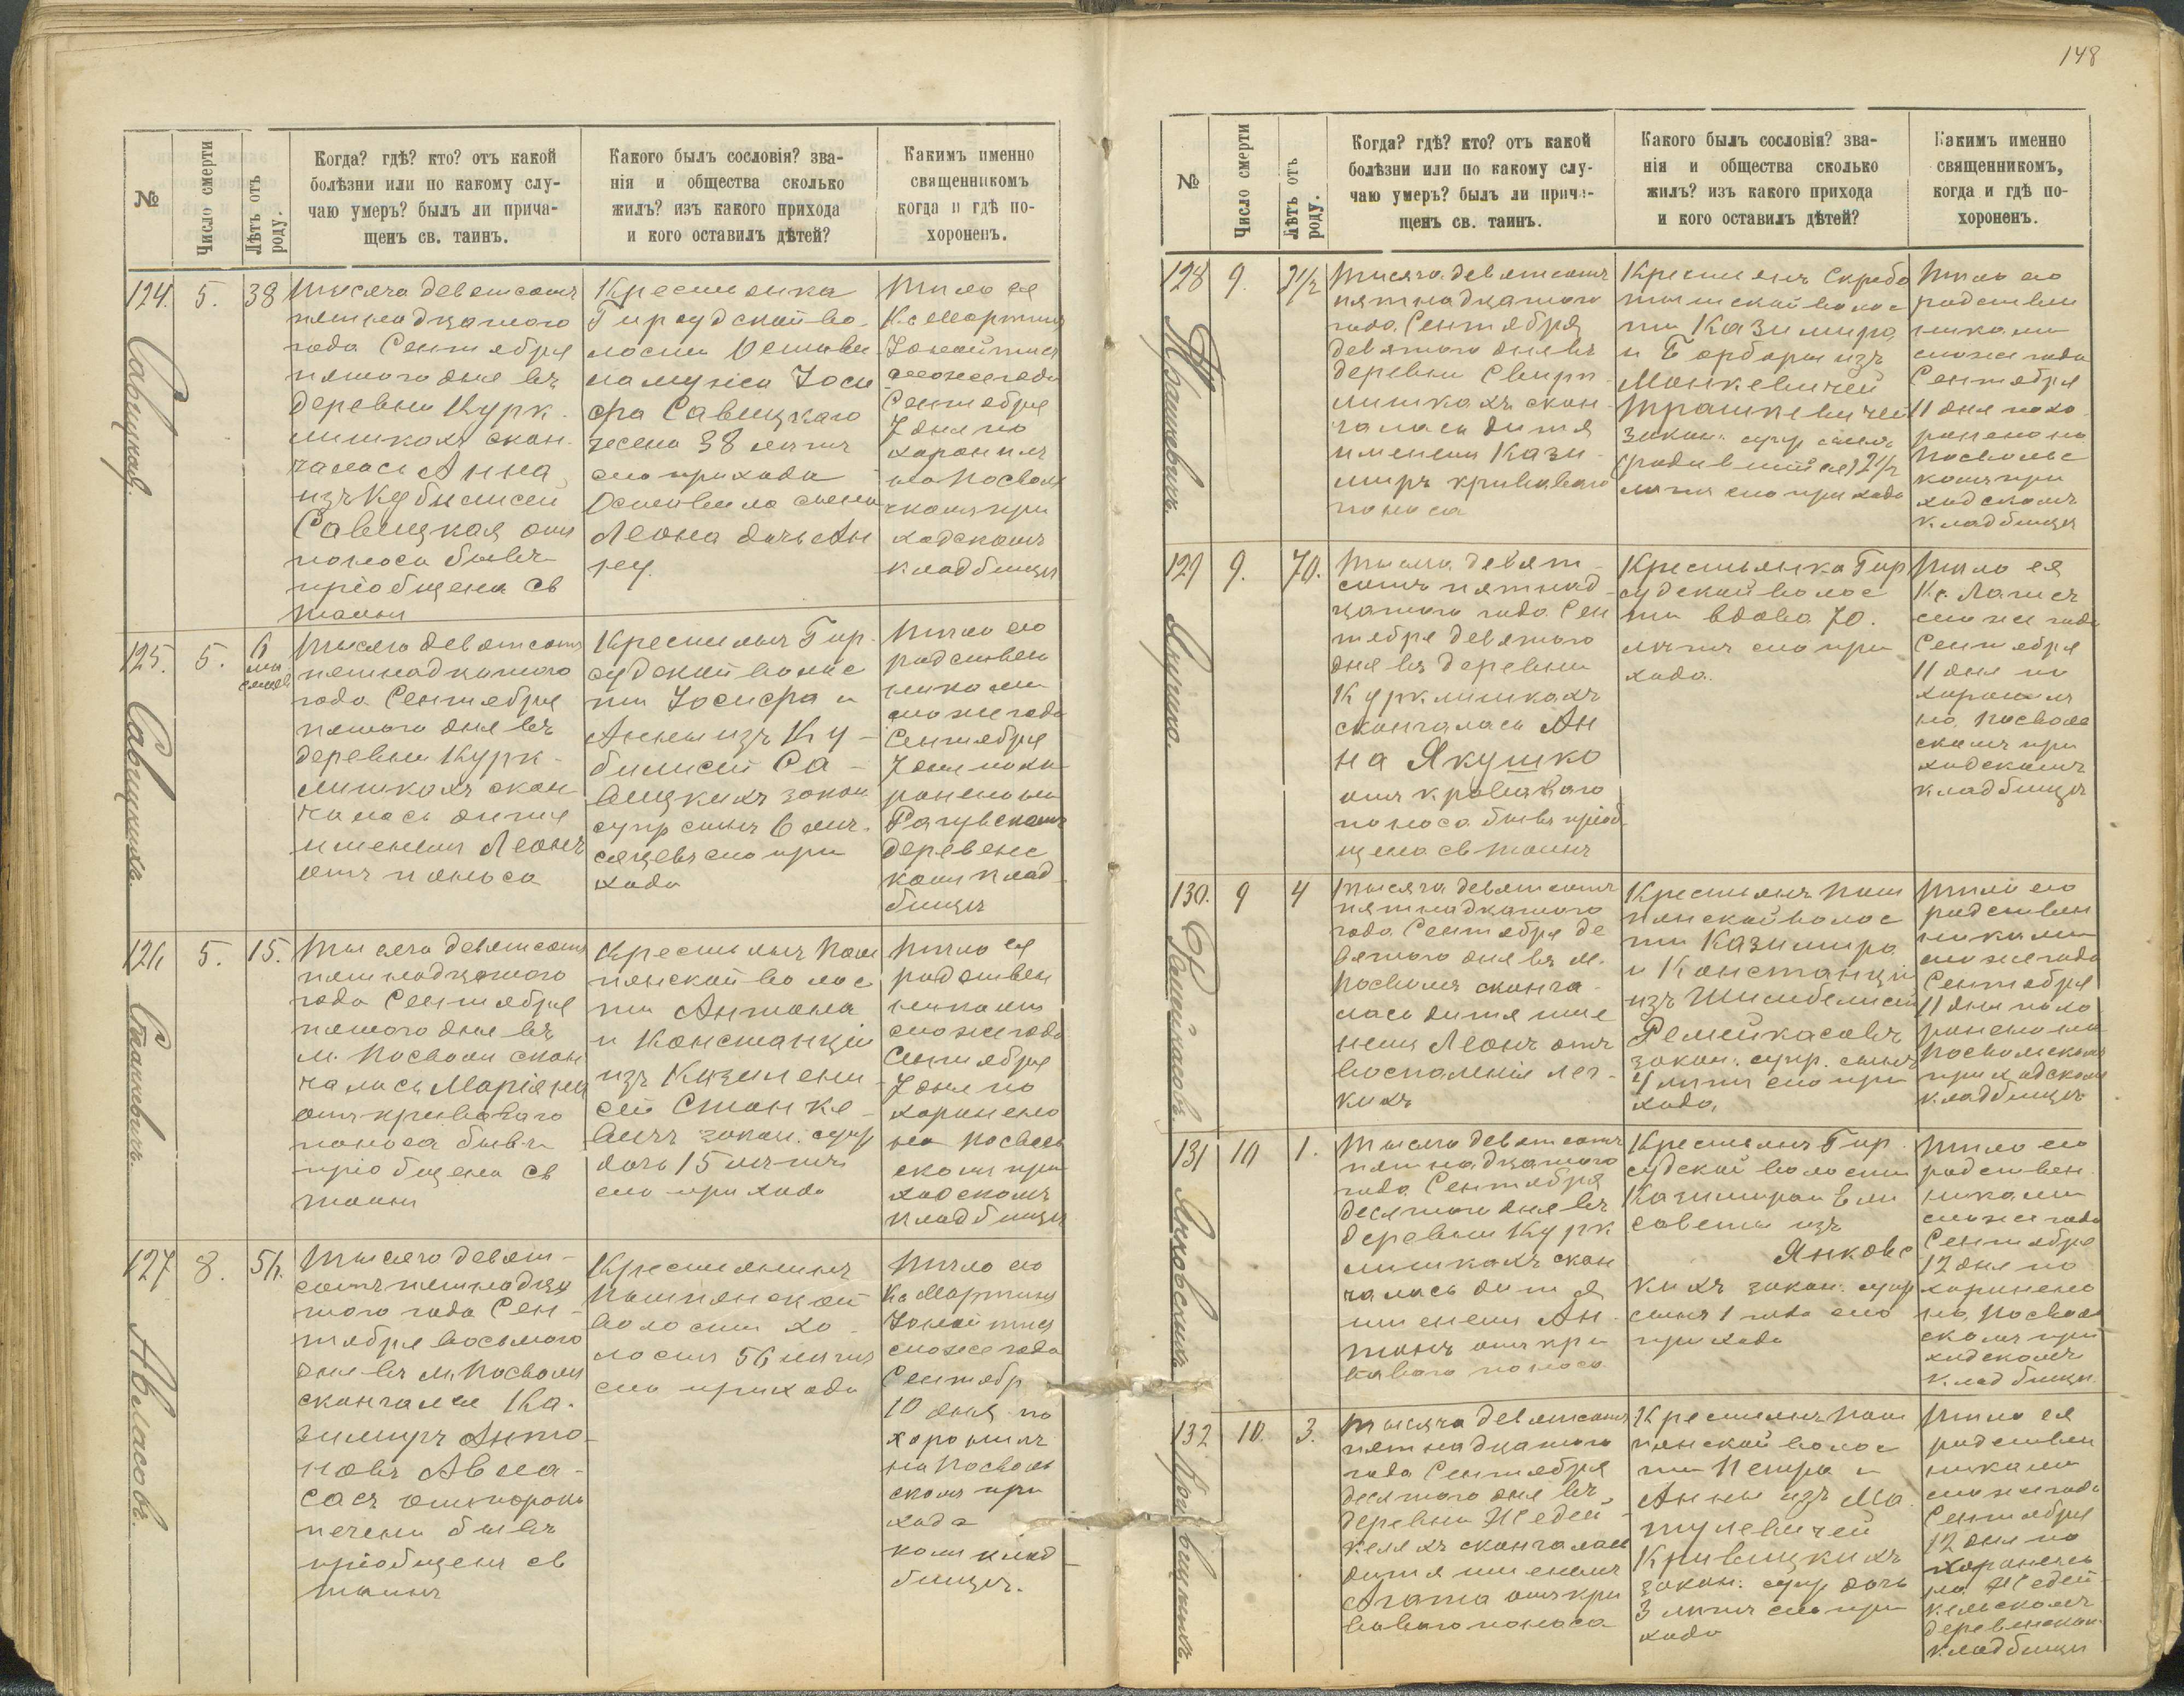 148
№
Число смерти
Лѣтъ отъ роду.
Когда? гдѣ? кто? отъ какой
болѣзни или по какому слу-
чаю умеръ? былъ ли прича-
щенъ св. таинъ.
Какого былъ сословія? зва-
нія и общества сколько
жилъ? изъ какого прихода
и кого оставилъ дѣтей?
Какимъ именно
священникомъ
когда и гдѣ по-
хороненъ.
124. 5. 38
Савицкая.
Тысяча девятсотъ
пятнадцатого
года Сентября
пятого дня въ
деревни Курк-
лишкахъ скон-
чалась Анна
изъ Кубилисей
Савицкая отъ
поноса бывъ
пріобщена св
таинъ
Крестьянка
Гирсудской во-
лости Оставила
мужа Іоси
фа Савицкаго
38 лѣтъ
сего прихода
Оставила сына
Леона дочь Ан
ну.
Тѣло ея
Кс Мартинъ
сегоже года
Сентября
7 дня по
хоронилъ
на Посволь
скомъ при
ходскомъ
кладбищѣ
125. 5. 6 мѣ сяцевъ
Савицкихъ.
Тысяча девятсотъ
пятнадцатого
года Сентября
пятого дня въ
деревни Курк-
лишкахъ скон
чалось дитя
именемъ Леонъ
отъ поноса
Крестьянъ Гир-
судской волос
ти Іосифа и
Анны изъ Ку-
билисей Са-
вицкихъ закон
супр сынъ 6 мѣ-
сяцевъ сего при
хода
Тѣло его
родствен
никами
сегоже года
Сентября
7 дня похо
ронено на
деревенс
комъ клад
бищѣ
126 5. 15.
Станкевичъ.
Тысяча девятсотъ
пятнадцатого
года Сентября
пятого дня въ
м. Посволи скон
чалась Маріяна
отъ кроваваго
поноса бывъ
пріобщена св
таинъ
Крестьянъ Пош
пянской волос
ти Антона
и Констанціи
изъ
Станке-
вичъ закон: супр
дочь 15 лѣтъ
сего прихода
Тѣло ея
родствен
никами
сегоже года
Сентября
7 дня по
хоронено
на Посволь
скомъ при
ходскомъ
кладбищѣ
127 8. 56.
Авласовъ.
Тысяча девят-
сотъ пятнадца
того года Сен-
тября восьмого
дня въ м. Посволи
скончался Ка-
зимиръ Анто-
новъ Авла-
сасъ отъ порока
печени бывъ
пріобщенъ св
таинъ
Крестьянинъ
Пошпянской
волости хо-
лостъ 56 лѣтъ
сего прихода
Тѣло его
Кс Мартинъ
сегоже года
Сентябр
10 дня по
хоронилъ
на Посволь
скомъ при
ходс
комъ клад-
бищѣ.
№
Число смерти
Лѣтъ отъ роду.
Когда? гдѣ? кто? отъ какой
болѣзни или по какому слу-
чаю умеръ? былъ ли прича-
щенъ св. таинъ.
Какого былъ сословія? зва-
нія и общества сколько
жилъ? изъ какого прихода
и кого оставилъ дѣтей?
Какимъ именно
священникомъ,
когда и гдѣ по-
хороненъ.
128 9. 2½
Трашкевичъ.
Тысяча девятсотъ
пятнадцатого
года Сентября
девятого дня въ
деревни Свирп-
лишкахъ скон-
чалась дитя
именемъ Кази-
миръ кроваваго
поноса
Крестьянъ Скробо
тышской волос
ти Казимира
и Барбары изъ
Монкевичей
Трашкевичей
закон: супр сынъ
(родившійся) 2½
лѣтъ сего прихода
Тѣло его
родствен
никами
сегоже года
Сентября
11 дня похо
ронено на
Посвольс
комъ при
ходскомъ
кладбищѣ
129 9. 70.
Якушко.
Тысяча девят-
сотъ пятнад-
цатого года Сен
тября девятого
дня въ деревни
Курклишкахъ
скончалась Ан
на Якушко
отъ кроваваго
поноса бывъ пріоб
щена св таинъ
Крестьянка Гир
судской волос
ти вдова 70.
лѣтъ сего при
хода.
Тѣло ея
Кс.
сегоже года
Сентября
11 дня по
хоронилъ
на Посволь
скомъ при
ходскомъ
кладбищѣ
130. 9 4
Рамейкасовъ.
Тысяча девятсотъ
пятнадцатого
года Сентября де
вятого дня въ м.
Посволѣ сконча-
лась дитя име
немъ Леонъ отъ
воспаленія лег-
кихъ
Крестьянъ Пош
пянской волос
ти Казимира
и Констанціи
изъ
Ремейкасовъ
закон: супр. сынъ
4 лѣтъ сего при
хода,
Тѣло его
родствен
никами
сегоже года
Сентября
11 дня похо
ронено на
Посвольскомъ
приходскомъ
кладбищѣ
131 10 1.
Янковскихъ
Тысяча девятсотъ
пятнадцатого
года Сентября
десятого дня въ
деревни Курк
лишкахъ скон
чалась дитя
именемъ Ан-
тонъ отъ кро
ваваго поноса
Крестьянъ Гир-
судской волости
Казимира и Ели
саветы изъ
Янковс
кихъ закон: супр
сынъ 1 года сего
прихода
Тѣло его
родствен
никами
сегоже года
Сентября
12 дня по
хоронено
на Посволь
скомъ при
ходскомъ
кладбищѣ
132 10. 3.
Тысяча девятсотъ
пятнадцатого
года Сентября
десятого дня въ
деревни Недей-
келяхъ скончалась
дитя именемъ
Агата отъ кро
ваваго поноса
Крестьянъ Пош
пянской волос
ти Петра и
Анны изъ Ма
тулевичей
Кривицкихъ
закон: супр дочь
3 лѣтъ сего при
хода
Тѣло ея
родствен
никами
сегоже года
Сентября
12 дня по
хоронено
на Недей-
кельскомъ
деревенском
кладбищѣ